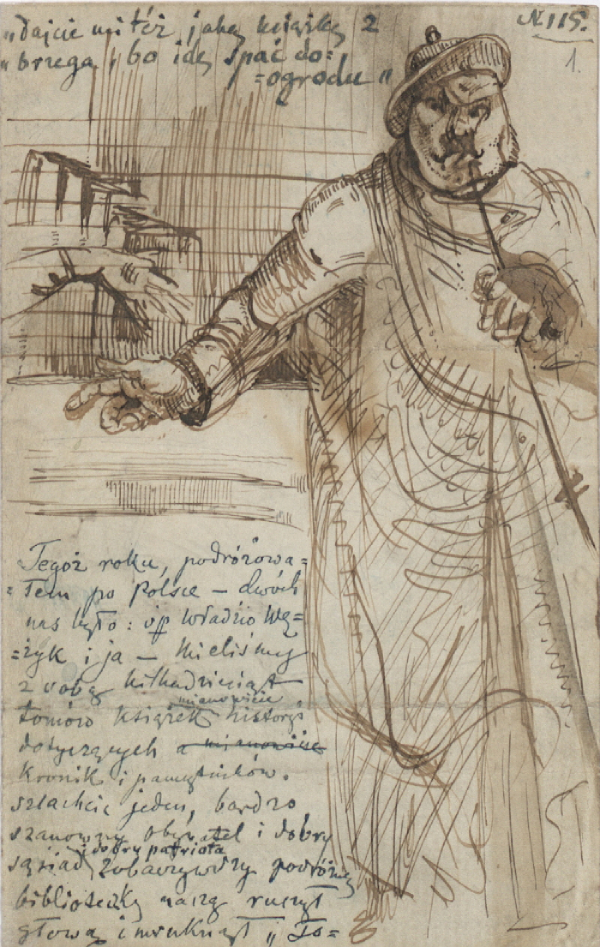 "dajcie mi też jaką książkę z
"brzega, bo idę spać do=
=ogrodu"
N. 115.
1.
Tegoż roku, podróżowa=
=łem po Polsce – dwóch
nas było: ś.p. Władzio Wę=
=żyk i ja – Mieliśmy
z sobą kilkadziesiąt
mianowicie
tomów książek history
dotyczących a mianowicie
Kronik i pamiętników.
szlachcic jeden, bardzo
szanowny obywatel i dobry
i dobry patriota
sąsiad, zobaczywszy podróżną
biblioteczkę naszą ruszył
głową i mruknął „To=